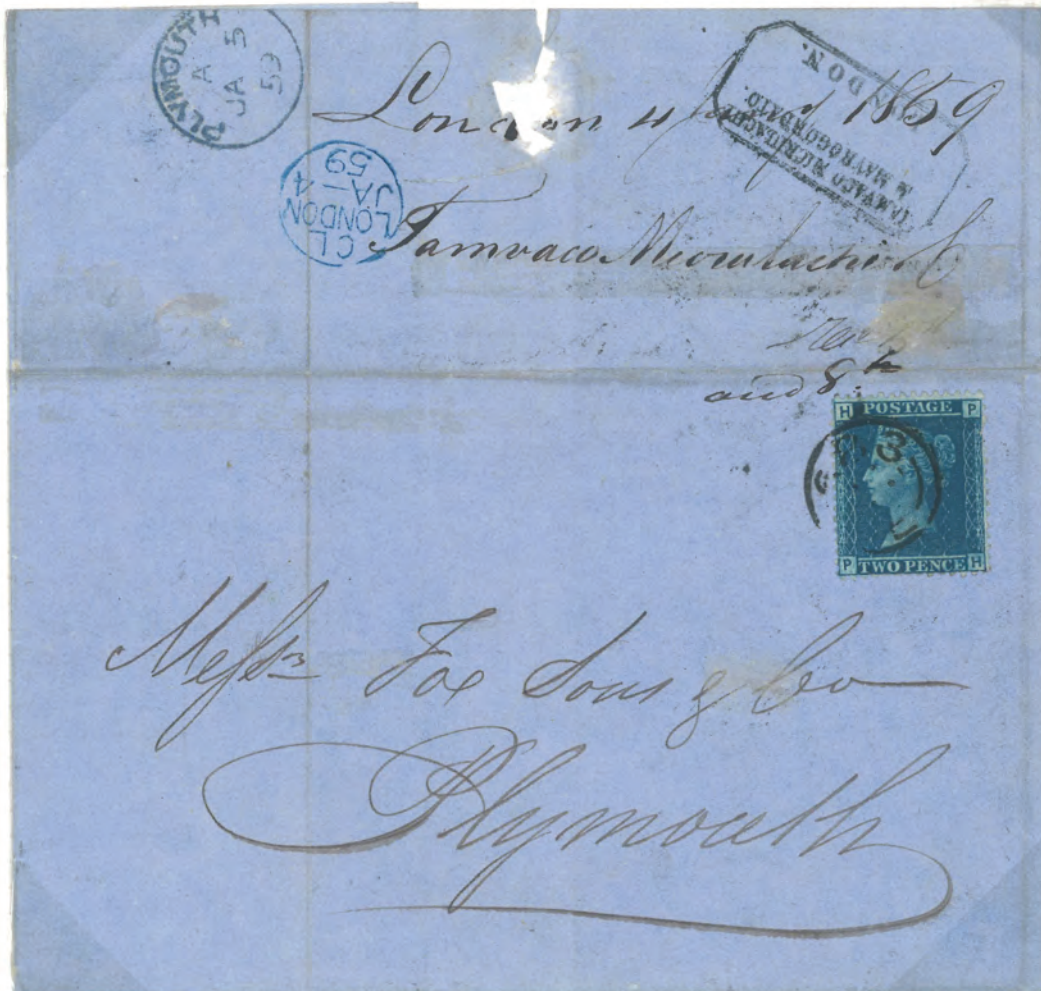 PLYMOUTH
A
JA 5
59
London 4 1859
TAMVACO MICRULACHI
& MAVROGORDATO.
LONDON.
CL
LONDON
JA 4
59
Tamvaco Micrulachi
and 8th
H POSTAGE P
3
P TWO PENCE H
Messrs Fox Sons & Co
Plymouth